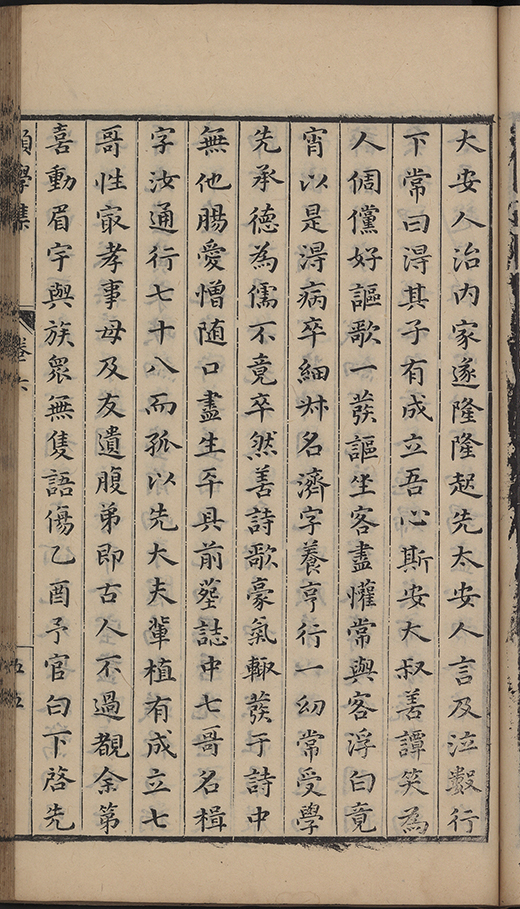 大安人治內家遂隆隆起先太安人言及泣數行
下常曰淂其子有成立吾心斯安大叔善譚笑為
人倜儻好謳歌一發謳坐客盡懽常與客浮白竟
宵以是淂病卒細叔名濟字養亨行一幼常受學
先承德為儒不竟卒然善詩歌豪氣輙發于詩中
無他腸愛憎随口盡生平具前塟誌中七哥名楫
字汝通行七十八而孤以先大夫輩植有成立七
哥性㝡孝事母及友遺腹弟即古人不過覩余第
喜動眉宇與族衆無隻語傷乙酉予官白下啓先
學集
卷六
五五